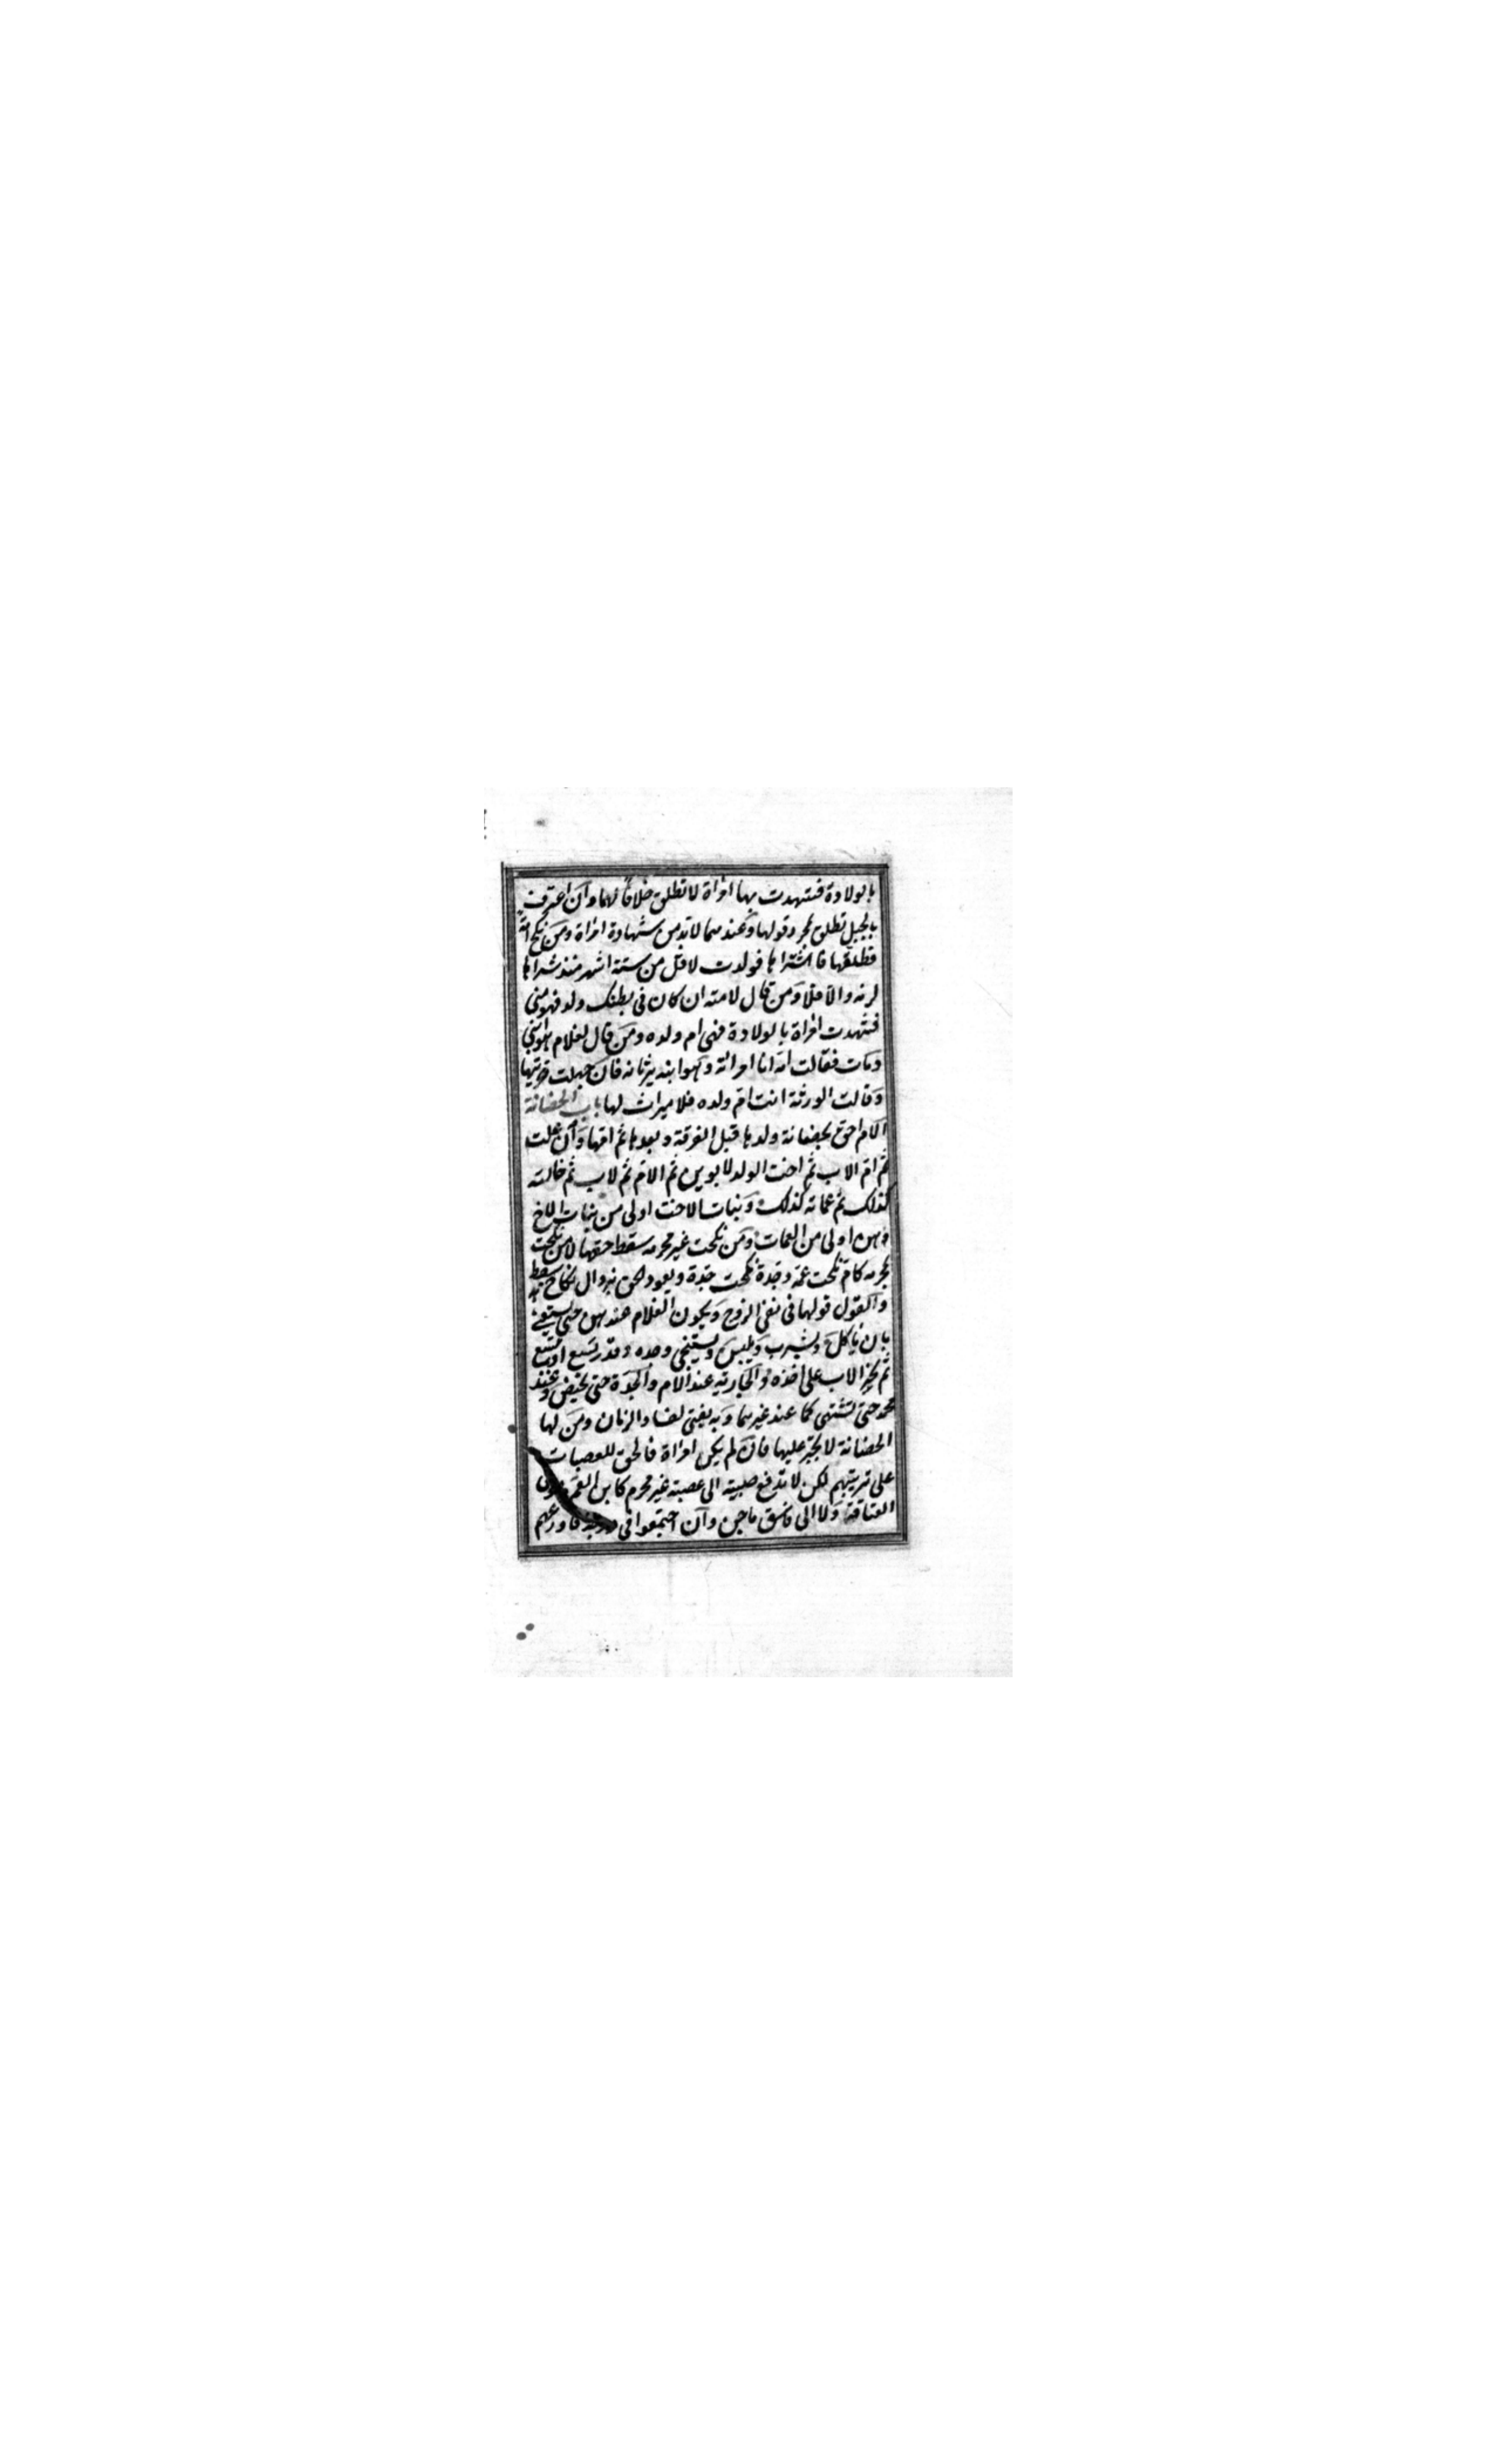 بالولادة فشهدت بها امرأة لا تطلق خلافا لهما وان اعترف
بالحبل تطلق بمجرد قولها وعندهما لا بد من شهادة امرأة ومن نكح امة
فطلقها فاشتراها فولدت لاقل من ستة اشهر منذ شراها
لزمه والا فلا ومن قال لامته ان كان في بطنك ولد فهو مني
فشهدت امرأة بالولادة فهي ام ولده ومن قال لغلام هو ابني
ومات فقالت امه انا امرأته وهو ابنه يرثانه فان جهلت حريتها
وقالت الورثة انت ام ولده فلا ميراث لها باب الحضانة
الام احق بحضانة ولدها قبل الفرقة وبعدها ثم امها وان علت
ثم ام الاب ثم اخت الولد لابوين ثم لام ثم لاب ثم خالته
كذلك ثم عماته كذلك وبنات الاخت اولى من بنات الاخ
وهن اولى من العمات ومن نكحت غير محرمه سقط حقها لا من نكحت
محرمه كام نكحت عمه وجدة نكحت جده ويعود الحق بزوال نكاح سقط به
والقول قولها في نفي الزوج ويكون الغلام عندهن حتى يستغني
بان ياكل ويشرب ويلبس ويستنجي وحده وقدر بتسع او بسبع
ثم يجبر الاب على اخذه والجارية عند الام والجدة حتى تحيض وعند
محمد حتى تشتهى كما عند غيرهما وبه يفتى لفساد الزمان ومن لها
الحضانة لا تجبر عليها فان لم يكن امرأة فالحق للعصبات
على ترتيبهم لكن لا تدفع صبية الى عصبة غير محرم كابن العم ومولى
العتاقة ولا الى فاسق ماجن وان اجتمعوا في درجة فاورعهم